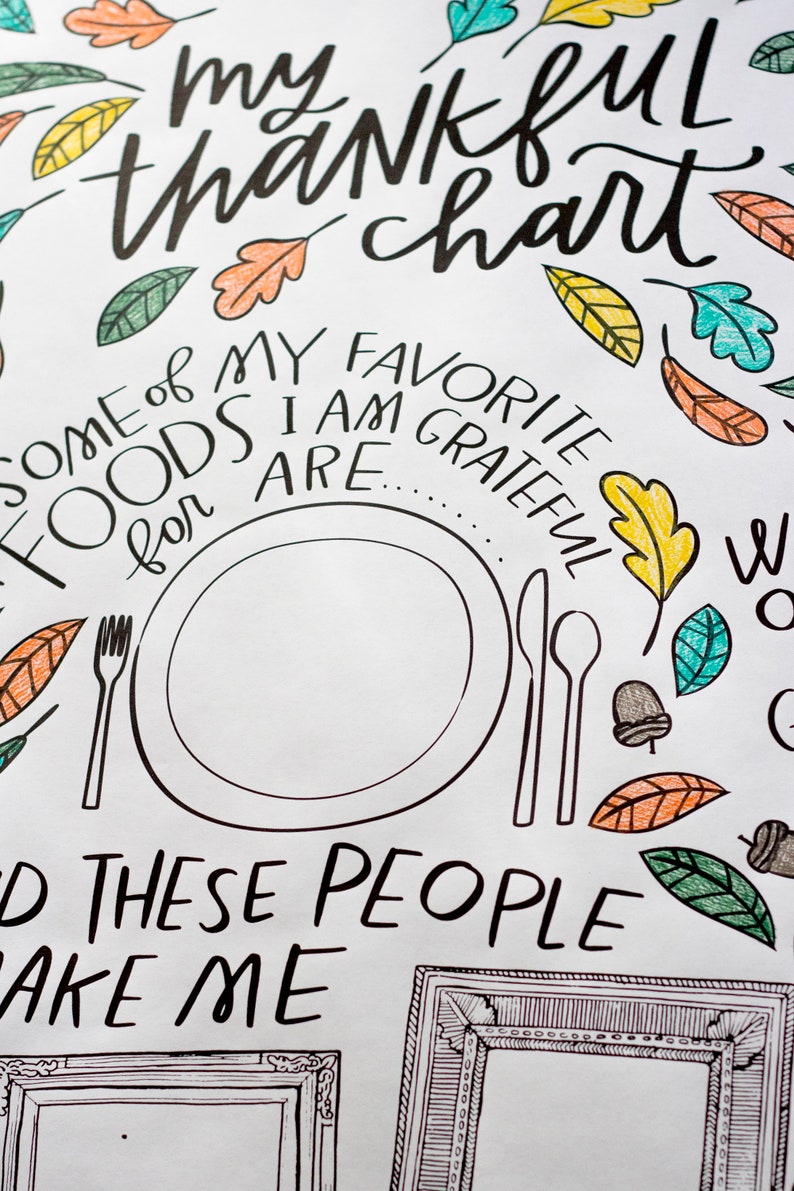 my
thankful
chart
SOME of MY FAVORITE
FOODS I AM GRATEFUL
for ARE........
ND THESE PEOPLE
MAKE ME
W
O
G